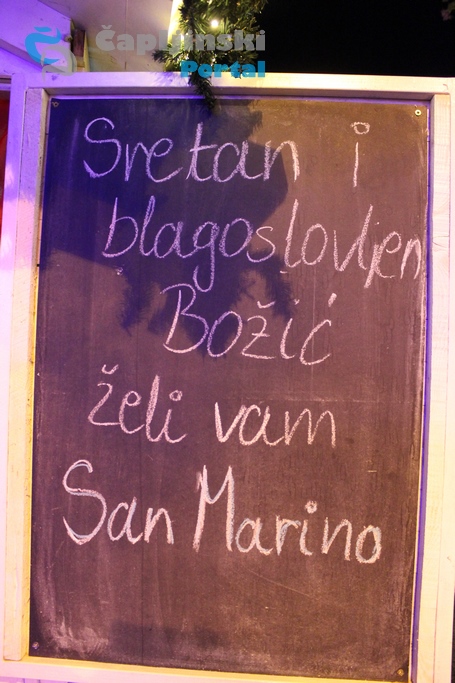 Čapljinski
Portal
Sretan i
blagoslovljen
Božić
želi vam
San Marino